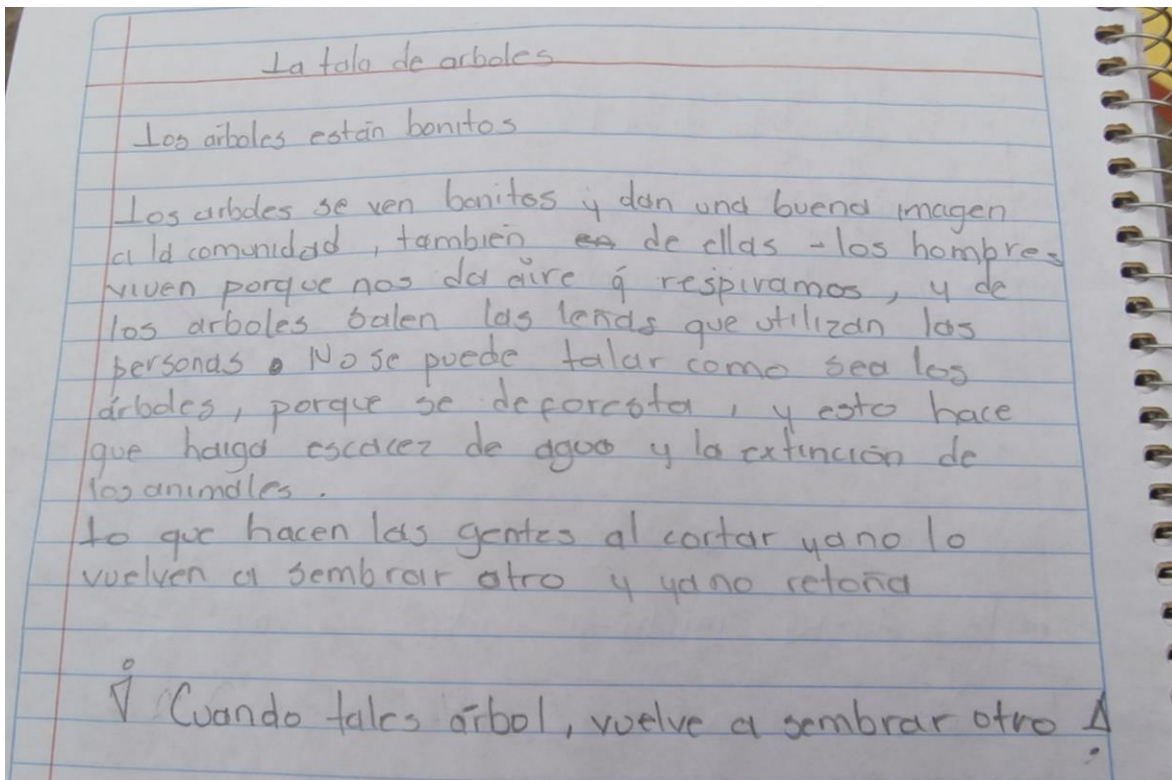 La tala de arboles
Los árboles están bonitos
Los arboles se ven bonitos y dan una buena imagen
a la comunidad, también de ellas - los hombres
viven porque nos da aire q respiramos, y de
los arboles salen las leñas que utilizan las
personas. No se puede talar como sea los
árboles, porque se deforesta, y esto hace
que haiga escacez de agua y la extinción de
los animales.
Lo que hacen las gentes al cortar ya no lo
vuelven a sembrar otro y ya no retoña
¡ Cuando tales árbol, vuelve a sembrar otro !